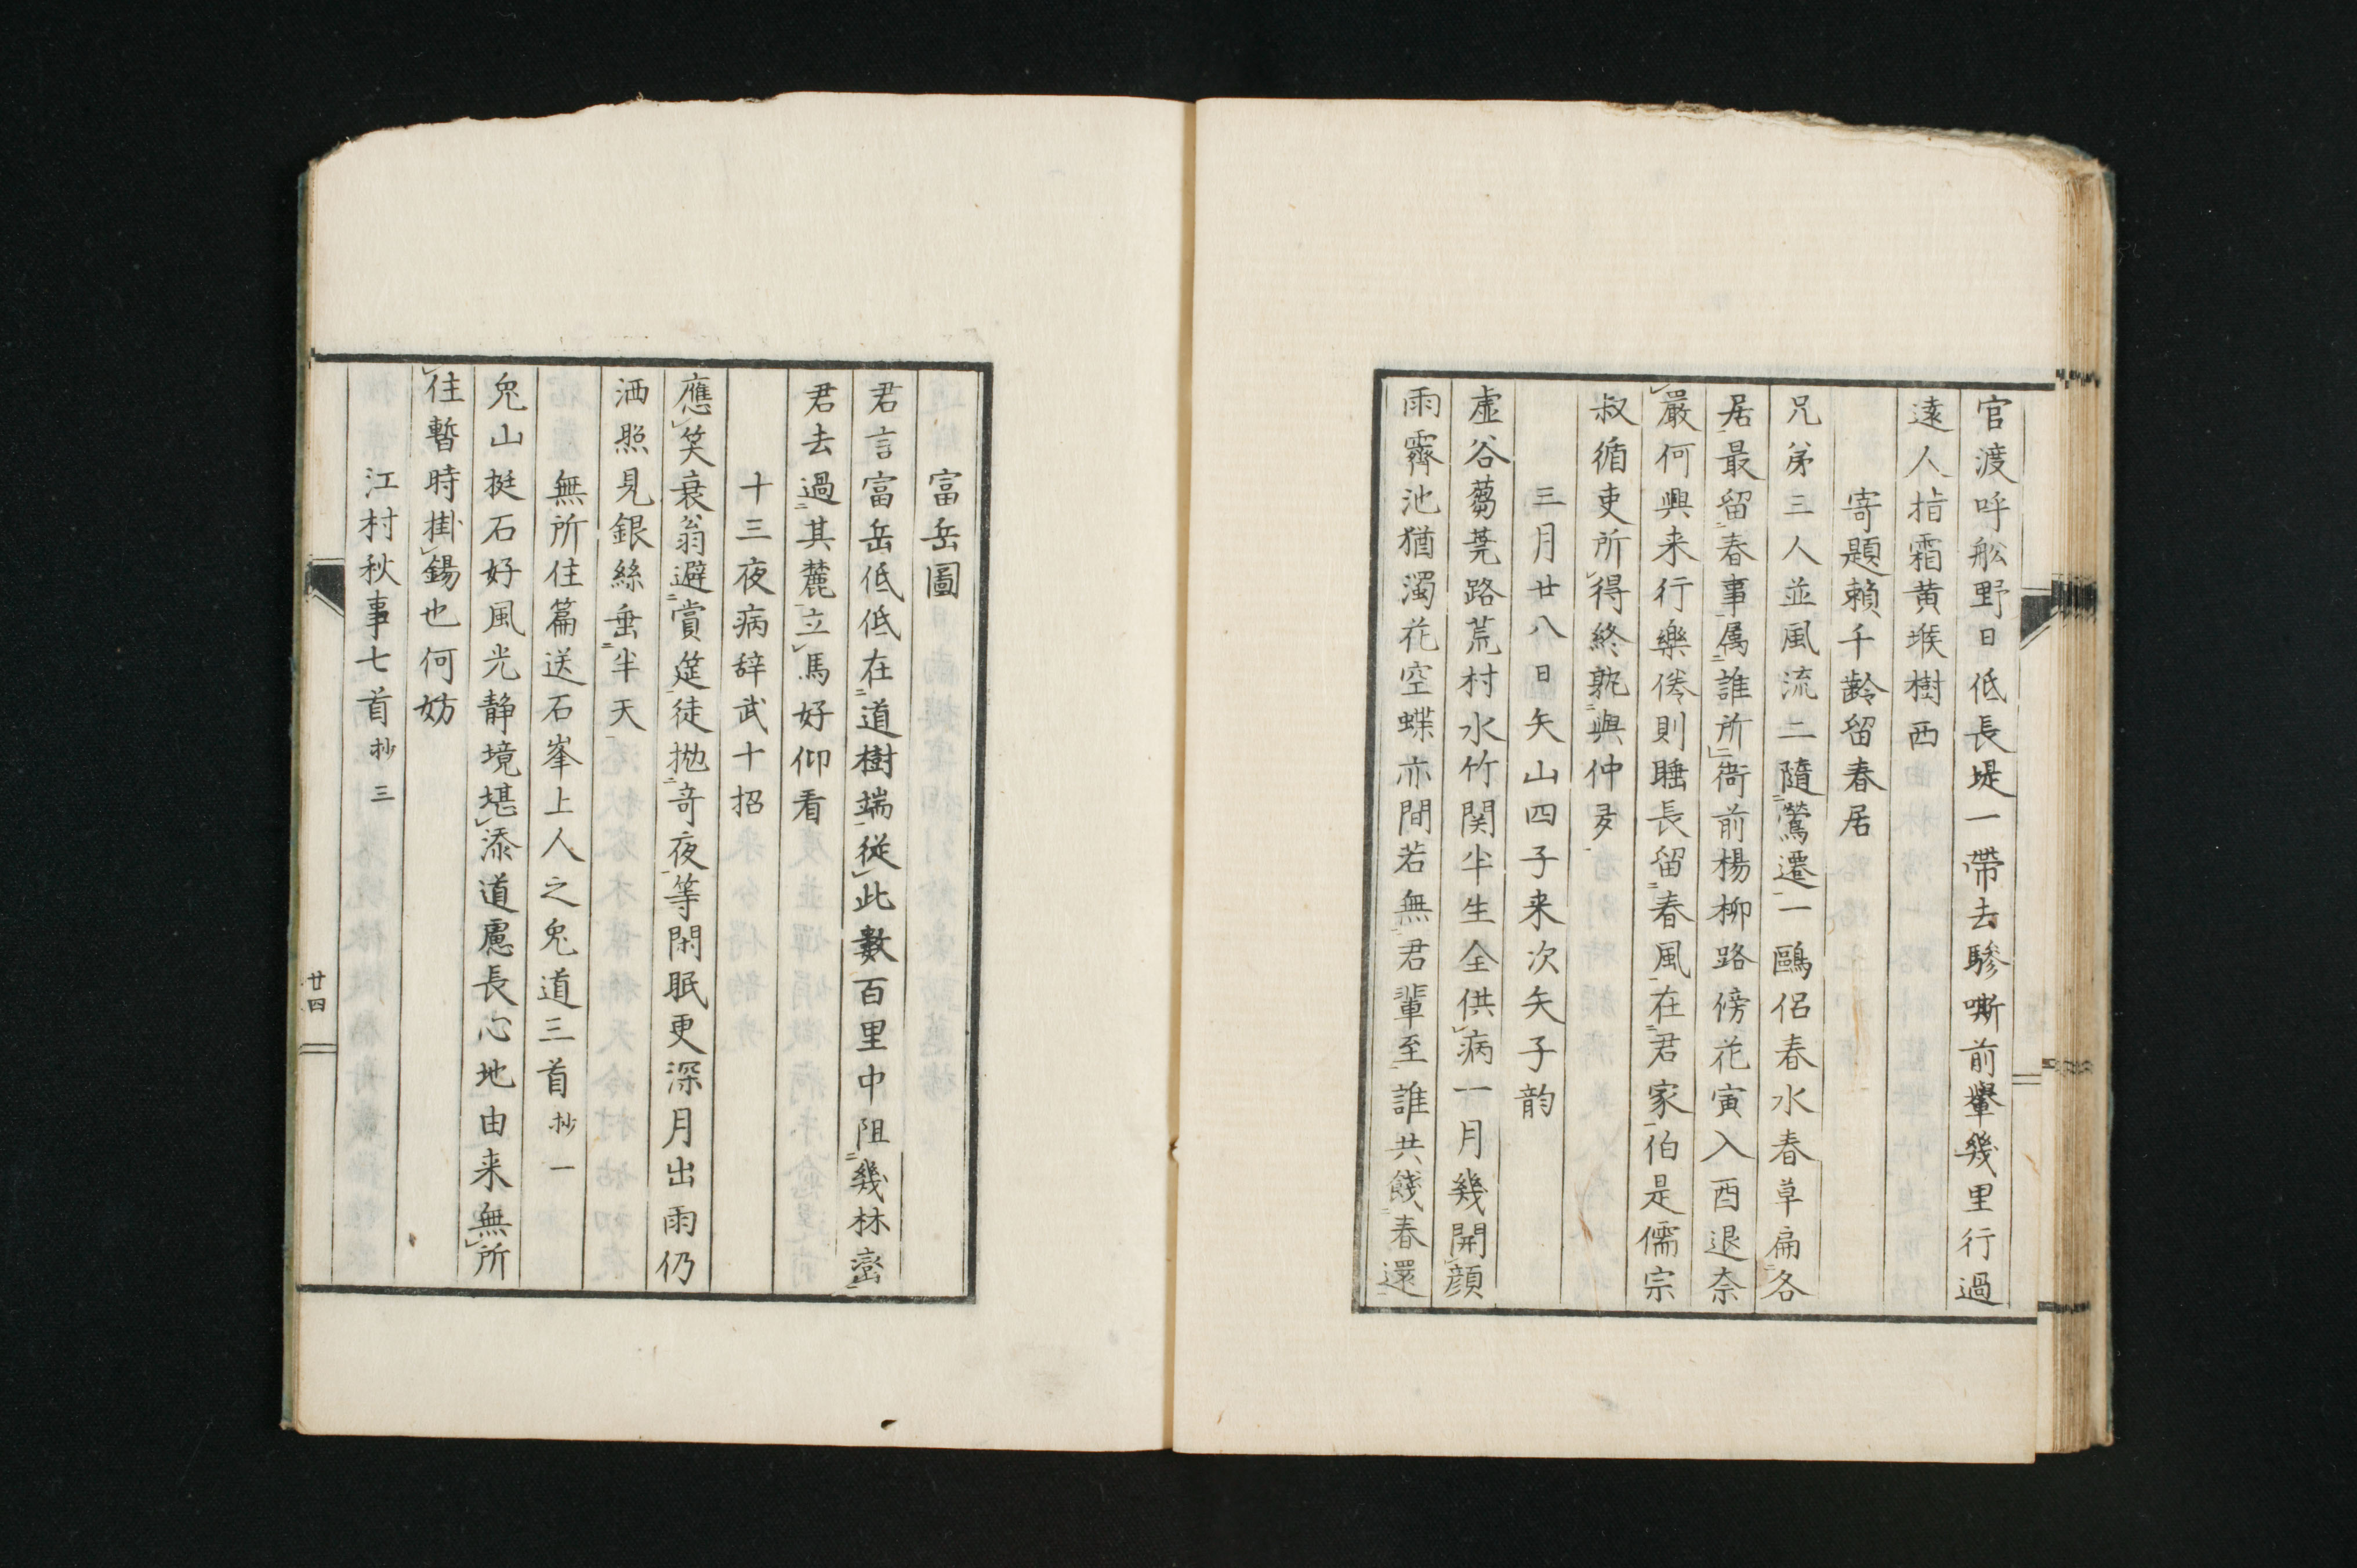 官渡呼舩野日低長堤一帶去驂嘶前轝幾里行過
遠人指霜黄堠樹西
寄題賴千齡留春居
兄弟三人並風流二隨鶯遷一鷗侶春水春草扁各
居最留春事属誰所衙前楊柳路傍花寅入酉退奈
嚴何興来行樂倦則睡長留春風在君家伯是儒宗
叔循吏所得終孰與仲多
三月廿八日矢山四子来次矢子韵
虚谷蒭蕘路荒村水竹関半生全供病一月幾開顔
雨霽池猶濁花空蝶亦間若無君輩至誰共餞春還
富岳圖
君言富岳低低在道樹端從此數百里中阻幾林巒
君去過其麓立馬好仰看
十三夜病辞武十招
應笑衰翁避賞筵徒抛奇夜等閑眠更深月出雨仍
洒照見銀絲垂半天
無所住篇送石峯上人之皃道三首 抄一
皃山挺石好風光静境堪添道慮長心地由来無所
住暫時掛錫也何妨
江村秋事七首 抄三
廿四